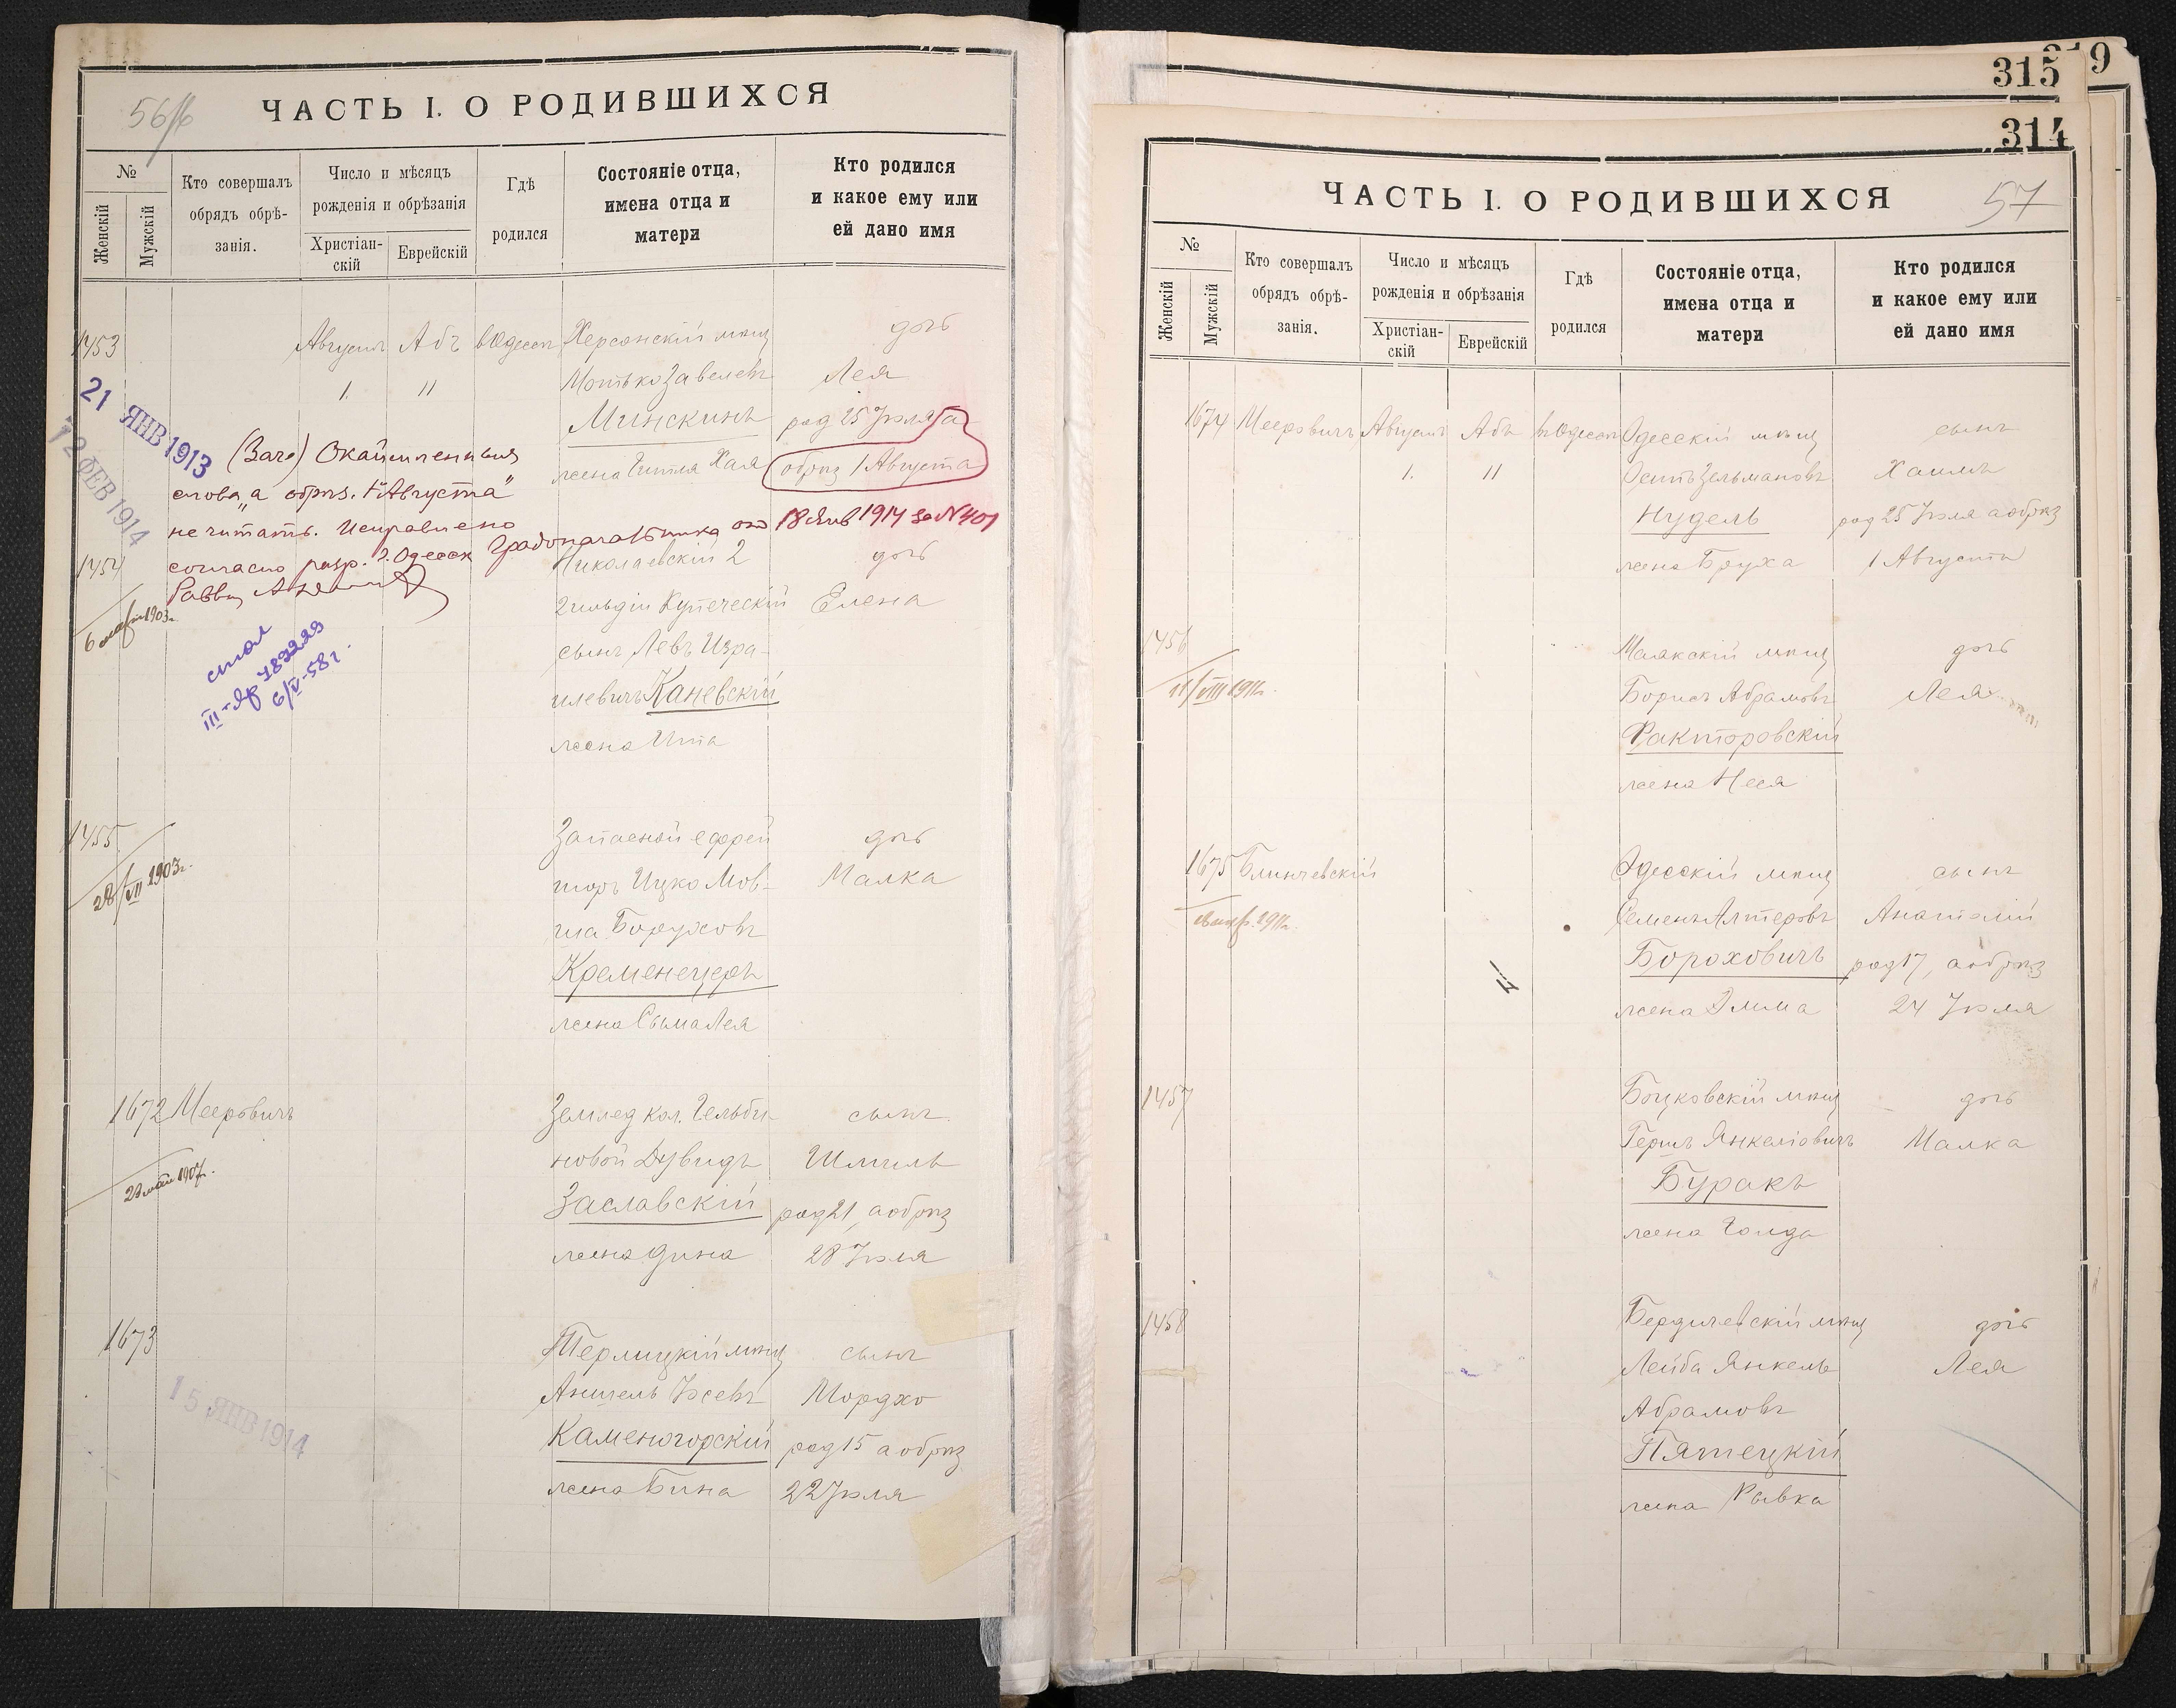 ЧАСТЬ I. О РОДИВШИХСЯ
№
Женскій
Мужскій
Кто совершалъ
обрядъ обрѣ-
занія.
Число и мѣсяцъ
рожденія и обрѣзанія
Христіан-
скій
Еврейскій
Гдѣ
родился
Состояніе отца,
имена отца и
матери
Кто родился
и какое ему или
ей дано имя
1453 Августъ Абъ въ Одессѣ Херсонскій мѣщ дочь
1. 11 Мотько Завелевъ Лея
21 ЯНВ 1913
12 ФЕВ 1914
Минскинъ род 25 Іюля а
жена Гитля Хая обрѣз 1 Августа
Окаймленныя
слова „а обрѣз. 1 Августа"
не читать. Исправлено
согласно разр. г. Одесск Градоначальника от 18 Янв 1914 за № 401
1454 Николаевскій 2 дочь
6 март 1903 г.
гильдіи Купеческій Елена
сынъ Левъ Изра-
илевичъ Каневскій
жена Ита
III-Яр 782229
6/V-58 г.
1455 Запасной ефрей дочь
28/VII 1903 г.
торъ Ицко Мов-
ша Боруховъ
Малка
Кременецеръ
жена Сыма Лея
1672 Мееровичъ Землед кол. Гельби- сынъ
новой Дувидъ Шмиль
Заславскій род 21, а обрѣз
жена Дина 28 Іюля
1673 Терлицкій мѣщ сынъ
Аншель Іосевъ Мордхо
Каменогорскій род 15 а обрѣз
жена Бина 22 Іюля
15 ЯНВ 1914
319
315
314
ЧАСТЬ I. О РОДИВШИХСЯ
57
№
Женскій
Мужскій
Кто совершалъ
обрядъ обрѣ-
занія.
Число и мѣсяцъ
рожденія и обрѣзанія
Христіан-
скій
Еврейскій
Гдѣ
родился
Состояніе отца,
имена отца и
матери
Кто родился
и какое ему или
ей дано имя
1674 Мееровичъ Августъ Абъ въ Одессѣ Одесскій мѣщ сынъ
1. 11 Осипъ Зельмановъ Хаимъ
Нудель род 25 Іюля а обрѣз
жена Бруха 1 Августа
1456 Маякскій мѣщ дочь
11/VIII 1911 г.
Борисъ Абрамовъ Лея
Факторовскій
жена Неся
1675 Блинчевскій Одесскій мѣщ сынъ
Семенъ Алтеровъ Анатолій
Бороховичъ род 17, а обрѣз
жена Эмма 24 Іюля
1457 Боцковскій мѣщ дочь
Гершъ Янкеліовичъ Малка
Буракъ
жена Голда
1458 Бердичевскій мѣщ дочь
Лейба Янкель Лея
Абрамовъ
Пятецкій
жена Рывка